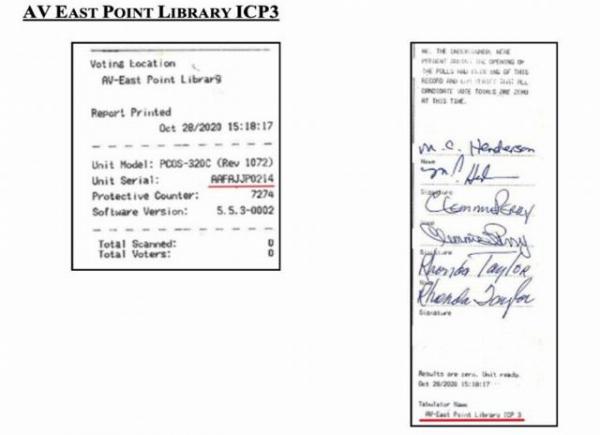 AV EAST POINT LIBRARY ICP3
Voting Location
AV-East Point Library
Report Printed
Oct 28/2020 15:18:17
Unit Model: PCOS-320C (Rev 1072)
Unit Serial: AAFAJJP0214
Protective Counter: 7274
Software Version: 5.5.3-0002
Total Scanned: 0
Total Voters: 0
WE, THE UNDERSIGNED, WERE
PRESENT DURING THE OPENING OF
THE POLLS AND END OF THIS
RECORD AND THAT ALL
CANDIDATE VOTE TOTALS ARE ZERO
AT THIS TIME.
M. C. Henderson
Name
Signature
Clemmie PERRY
Name
Clemmie Perry
Signature
Rhonda Taylor
Name
Rhonda Taylor
Signature
Results are zero. Unit ready.
Oct 28/2020 15:18:17
Tabulator Name
AV-East Point Library ICP 3